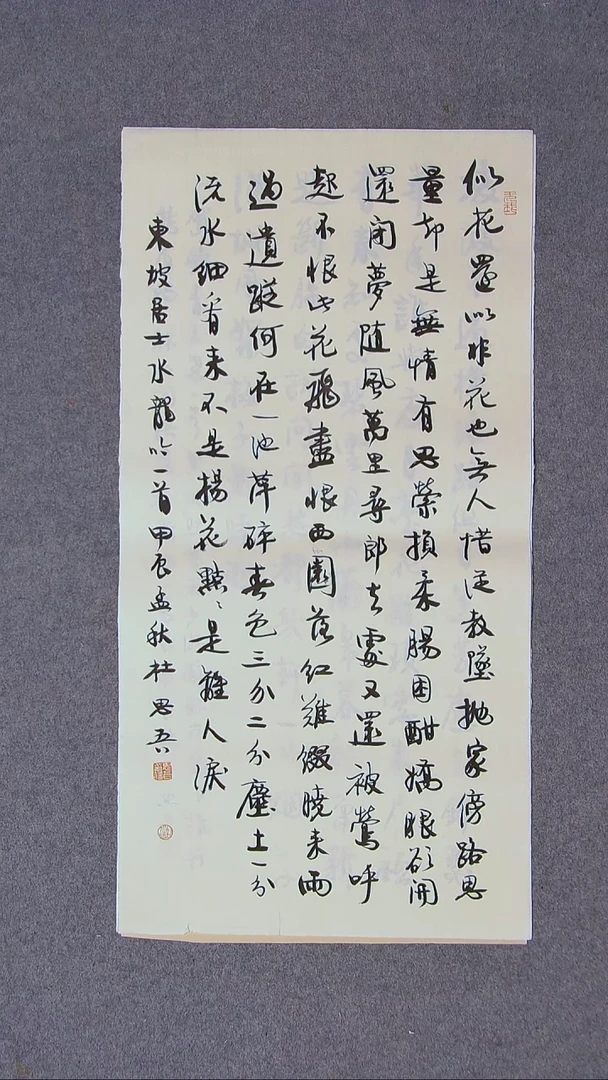 似花還似非花也無人惜從教墜拋家傍路思
量却是無情有思縈損柔腸困酣嬌眼欲開
還閉夢隨風萬里尋郎去處又還被鶯呼
起不恨此花飛盡恨西園落紅難綴曉來雨
過遺蹤何在一池萍碎春色三分二分塵土一分
流水細看來不是楊花點〻是離人淚
東坡居士水龍吟一首甲辰孟秋杜思吾